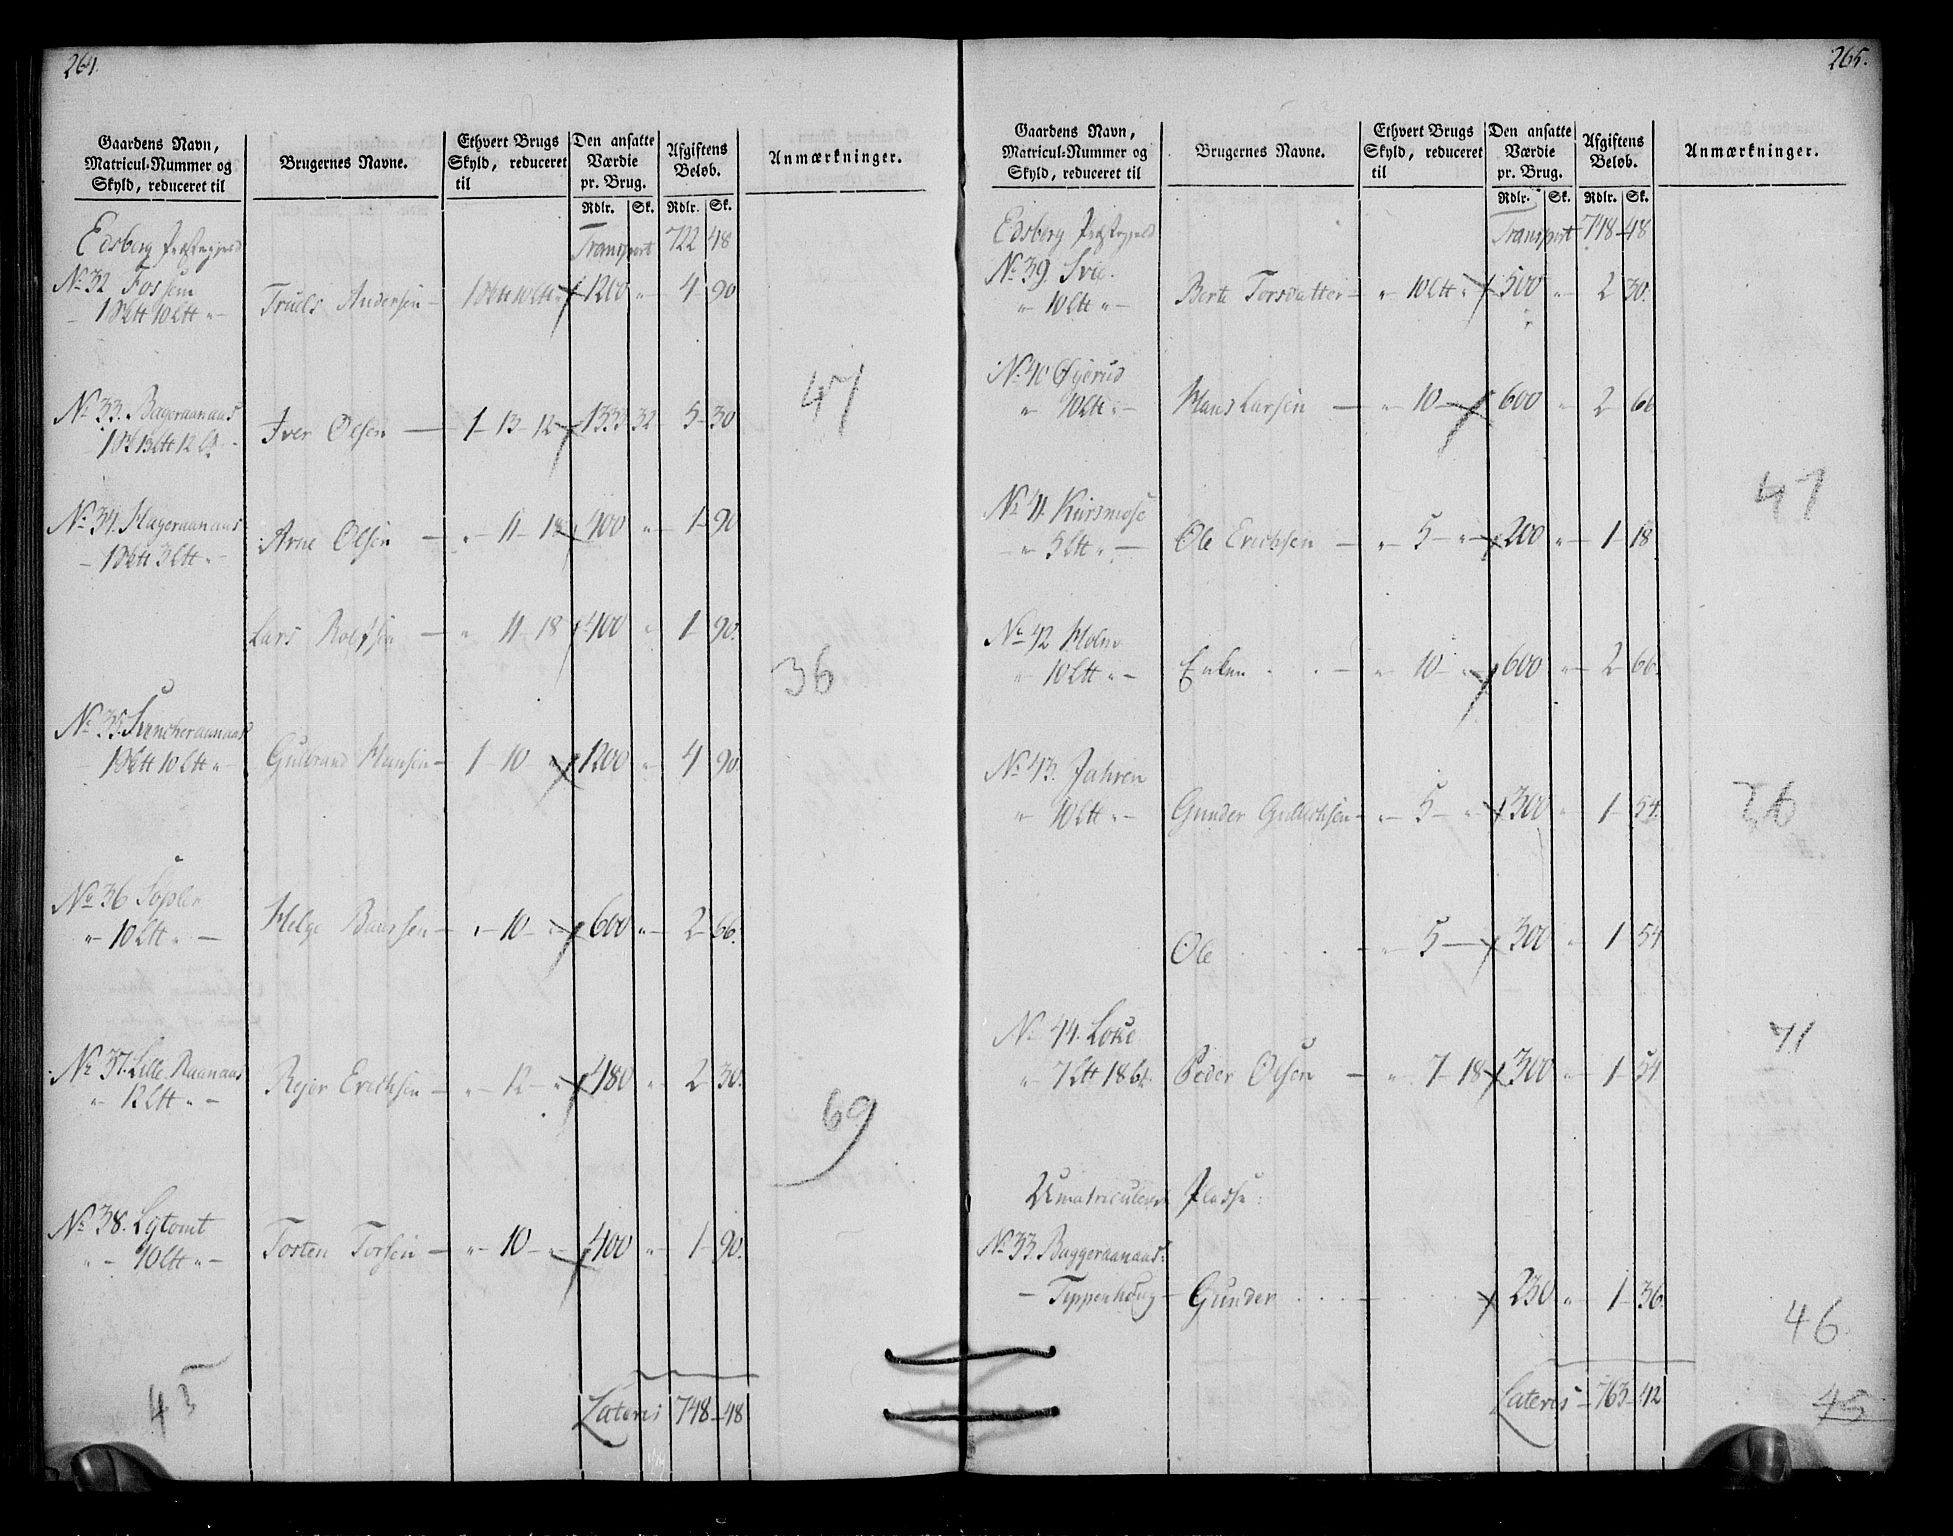 264.
Gaardens Navn, Matricul-Nummer og Skyld, reduceret til | Brugernes Navne. | Ethvert Brugs Skyld, reduceret til | Den ansatte Værdie pr. Brug. | Afgiftens Beløb. | Anmærkninger.
Rdlr. Sk. Rdlr. Sk.
Edsberg Præstegjeld Transport 722 48
No 32 Fossum
1 Sktt 10 Ltt " Truels Andersen 1 Sktt 10 Ltt " 1200 " 4 90
No 33. Bageraanaas 47
1 Sk 13 Ltt 12 Iver Olsen 1 - 13 - 12 1333 32 5 - 30
No 34. Hageraanaas
1 Sktt 3 Ltt " Arne Olsen " 11 - 18 400 " 1 - 90
Lars Rolfsen " 11 - 18 400 " 1 - 90.
36
No 35. Funcheraanaas
1 Sktt 10 Ltt " Gulbrand Hansen 1 - 10 " 1200 " 4 90.
No 36
" 10 Ltt " Helge " 10 - " 600 " 2 - 66.
No 37. Lille Raanaas
" 12 Ltt " Rejer Erichsen " 12 - " 480 " 2 30.
69
No 38. Lytomt
" 10 Ltt " Tosten Torsen " 10 - " 400 " 1 - 90.
45 Lateris 748 - 48
265.
Gaardens Navn, Matricul-Nummer og Skyld, reduceret til | Brugernes Navne. | Ethvert Brugs Skyld, reduceret til | Den ansatte Værdie pr. Brug. | Afgiftens Beløb. | Anmærkninger.
Rdlr. Sk. Rdlr. Sk.
Edsberg Præstegjeld Transport 748 - 48
No 39.
" 10 Ltt " Berte Torsdatter " 10 Ltt " 500 " 2 30.
No 40 Øyerud
" 10 Ltt " Hans Larsen " 10 - 600 " 2 66
No 41. Kursmose 47
" 5 Ltt " Ole Erichsen " 5 - " 200 " 1 - 18
No 42 Holm
" 10 Ltt " Enken " 10 - " 600 " 2 - 66.
No 43. Jahren
" 10 Ltt " Gunder " 5 - " 300 " 1 - 54.
36
Ole " 5 - 300 " 1 54
No 44. Loke 71
" 7 Ltt 18 Peder Olsen " 7 - 18 300 " 1 - 54
Umatriculerede Pladse:
No 33. Baggeraanaas:
Teppenhoug Gunder 230 " 1 - 36.
46
Lateris 763 - 42
45